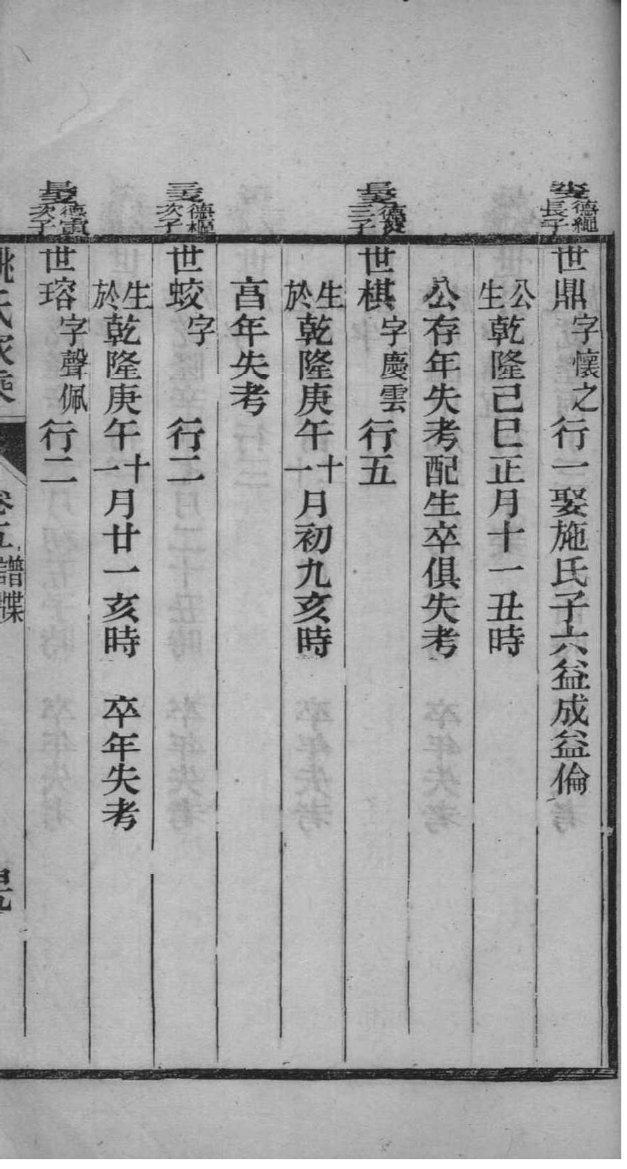 德繩長子
世鼎字懷之行一娶施氏子六益成益倫
公生乾隆己巳正月十一丑時
公存年失考配生卒俱失考
三子
世棋字慶雲行五
生於乾隆庚午十一月初九亥時
亯年失考
德樞次子
世蛟字行二
生於乾隆庚午十一月廿一亥時 卒年失考
次子
世瑢字聲佩行二
姚氏家乘 卷五 譜牒